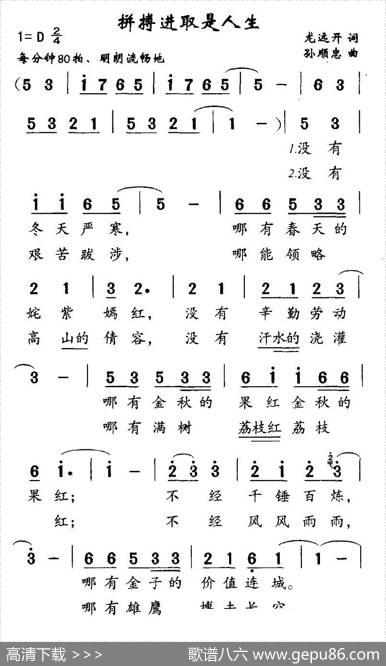 拼搏进取是人生
1=D 2/4
龙远开 词
每分钟80拍、明朗流畅地
孙顺忠 曲
(5 3 | i 7 6 5 | i 7 6 5 | 5 - | 6 3 |
5 3 2 1 | 5 3 2 1 | 1 - ) | 5 3 |
1.没 有
2.没 有
i i 6 5 | 5 - | 6 6 5 3 3 |
冬 天 严 寒, 哪 有 春 天 的
艰 苦 跋 涉, 哪 能 领 略
2 1 3 2. | 2 1 | 2 1 2 3 |
姹 紫 嫣 红, 没 有 辛 勤 劳 动
高 山的 倩 容, 没 有 汗水的 浇 灌
3 - | 5 3 5 3 3 | i i i 6 6 |
哪 有 金 秋 的 果 红 金 秋 的
哪 有 满 树 荔枝红 荔 枝
6 i. | i - | 2 3 3 | 2 i 2 3 |
果 红; 不 经 千 锤 百 炼,
红; 不 经 风 风 雨 雨,
3 - | 6 6 5 3 3 | 2 1 6 1 |
哪 有 金 子 的 价 值 连 城。
哪 有 雄 鹰 搏 击 长 空
高清下载 >>> 歌谱八六 www.gepu86.com